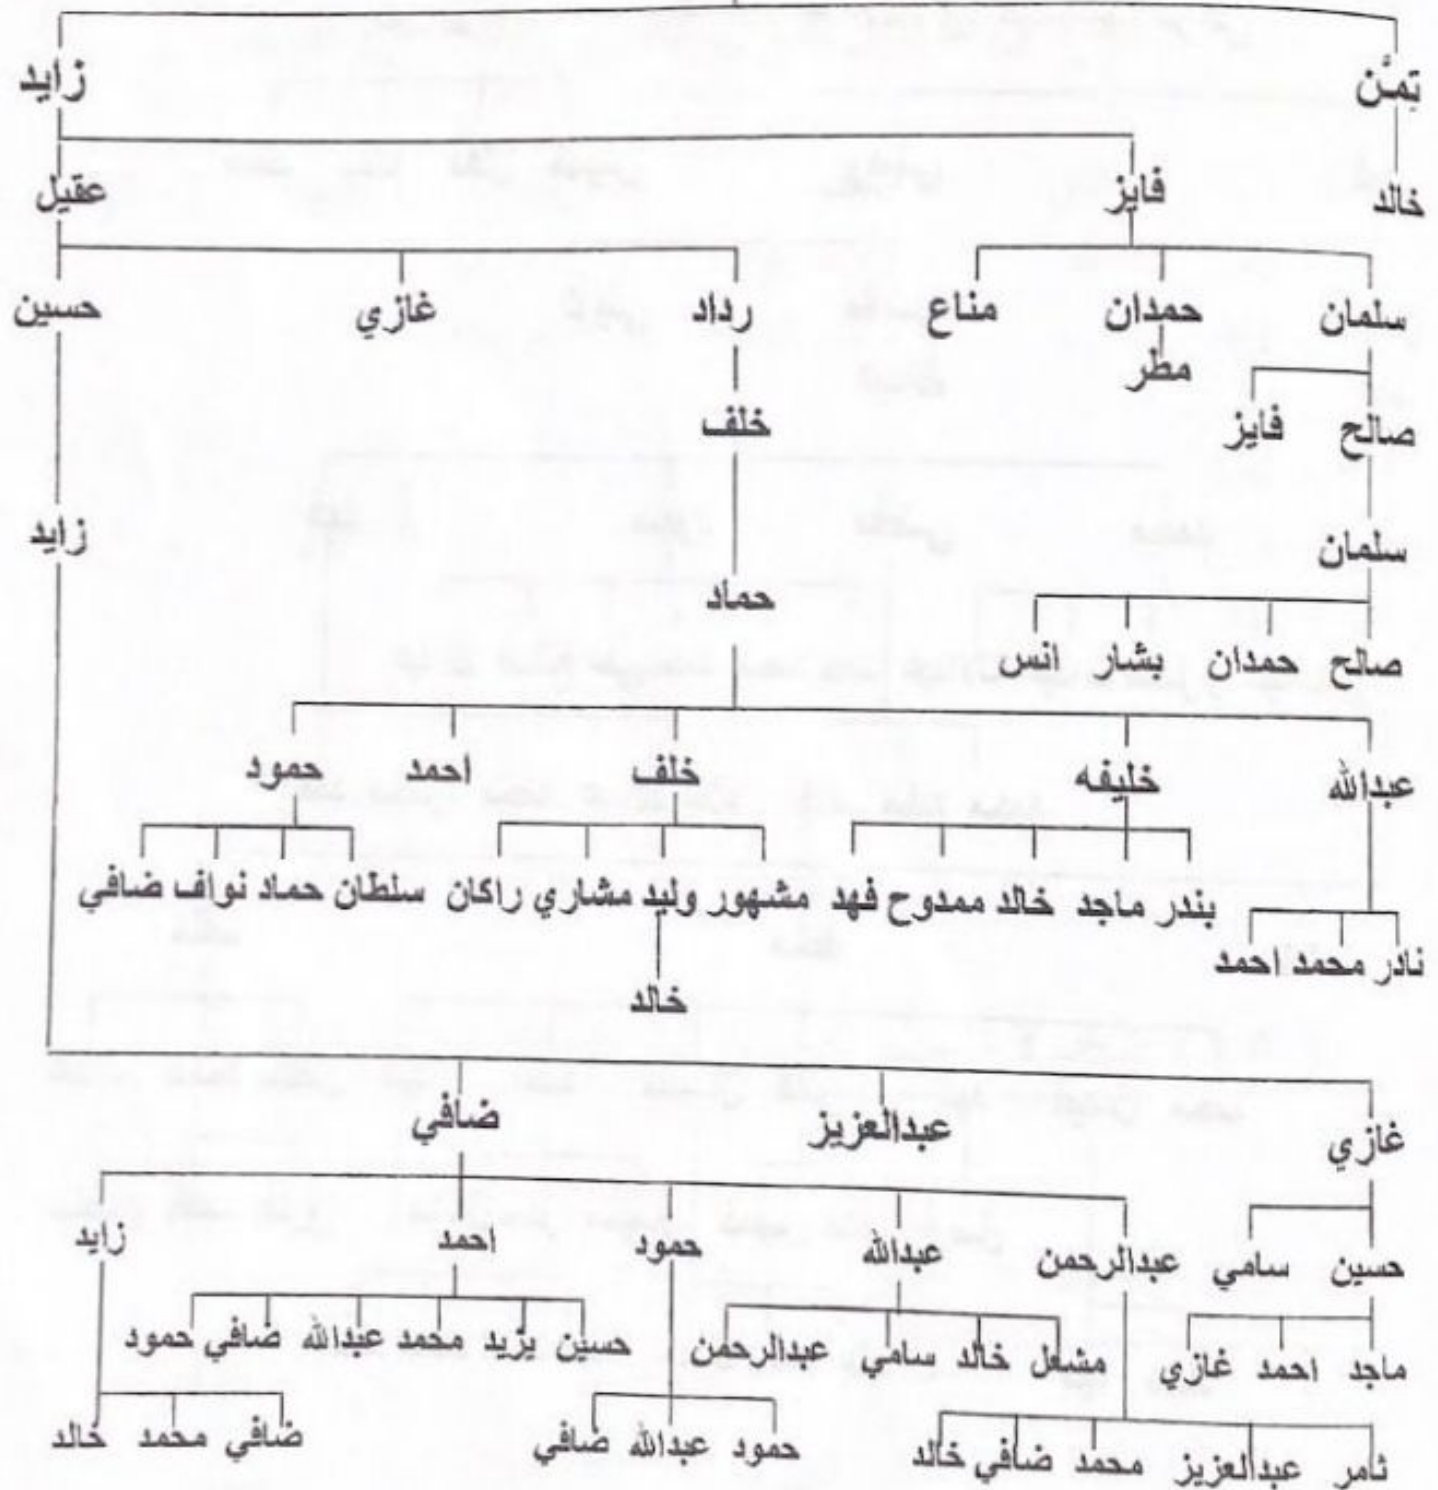 تمَّن زايد
خالد فايز عقيل
سلمان حمدان مناع رداد غازي حسين
مطر
صالح فايز خلف
سلمان زايد
حماد
صالح حمدان بشار انس
عبدالله خليفه خلف احمد حمود
بندر ماجد خالد ممدوح فهد مشهور وليد مشاري راكان سلطان حماد نواف ضافي
نادر محمد احمد
خالد
غازي عبدالعزيز ضافي
حسين سامي عبدالرحمن عبدالله حمود احمد زايد
ماجد احمد غازي مشعل خالد سامي عبدالرحمن حسين يزيد محمد عبدالله ضافي حمود
ثامر عبدالعزيز محمد ضافي خالد حمود عبدالله ضافي ضافي محمد خالد